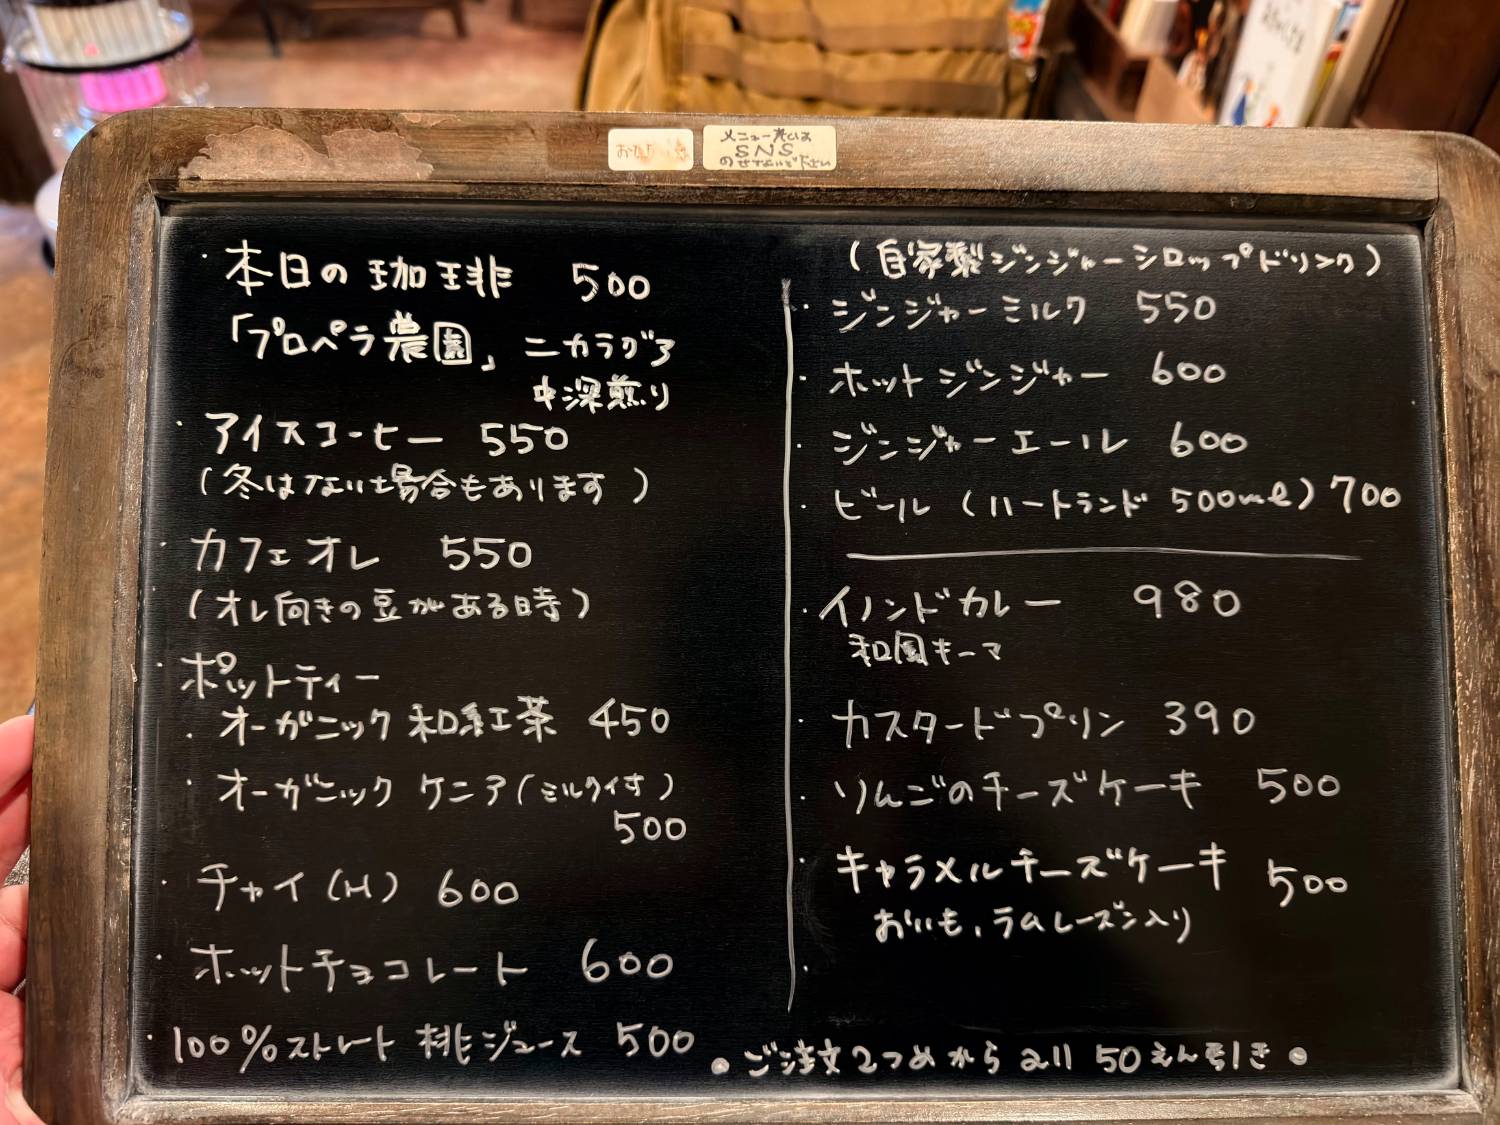 メニュー表は
SNS
のせないで下さい
本日の珈琲 500
「プロペラ農園」ニカラグア
中深煎り
・アイスコーヒー 550
(冬はない場合もあります)
・カフェオレ 550
(オレ向きの豆がある時)
・ポットティー
・オーガニック和紅茶 450
・オーガニック ケニア(ミルク付)
500
・チャイ(H) 600
・ホットチョコレート 600
・100%ストレート桃ジュース 500
(自家製ジンジャーシロップドリンク)
・ジンジャーミルク 550
・ホットジンジャー 600
・ジンジャーエール 600
・ビール(ハートランド 500ml) 700
・インドカレー 980
和風キーマ
・カスタードプリン 390
・りんごのチーズケーキ 500
・キャラメルチーズケーキ 500
おいも、ラムレーズン入り
・ご注文2つめから all 50えん引き・